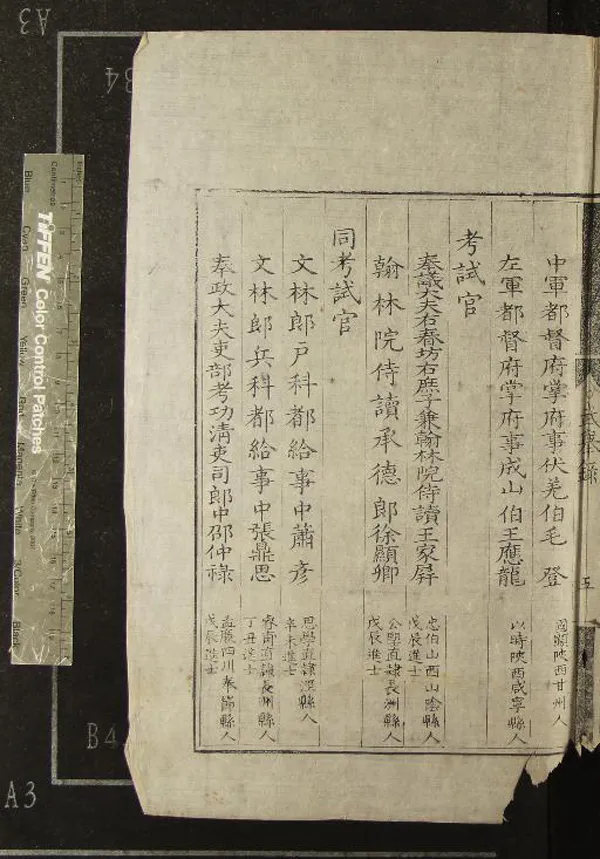 武舉錄
五
中軍都督府掌府事伏羌伯毛登
國陝西甘州人
左軍都督府掌府事成山伯王應龍
以時陝西咸寧縣人
考試官
奉議大夫右春坊右庶子兼翰林院侍讀王家屏
忠伯山西山陰縣人
戊辰進士
翰林院侍讀承德郎徐顯卿
公望直隸長洲縣人
戊辰進士
同考試官
文林郎戶科都給事中蕭彥
思學直隸涇縣人
辛未進士
文林郎兵科都給事中張鼎思
睿甫直隸長洲縣人
丁丑進士
奉政大夫吏部考功清吏司郎中邵仲祿
孟廉四川奉節縣人
戊辰進士
A3
B4
B4
A3
Inches
Centimetres
TIFFEN Color Control Patches
Blue
Cyan
Green
Yellow
Red
Magenta
White
3/Color
Black